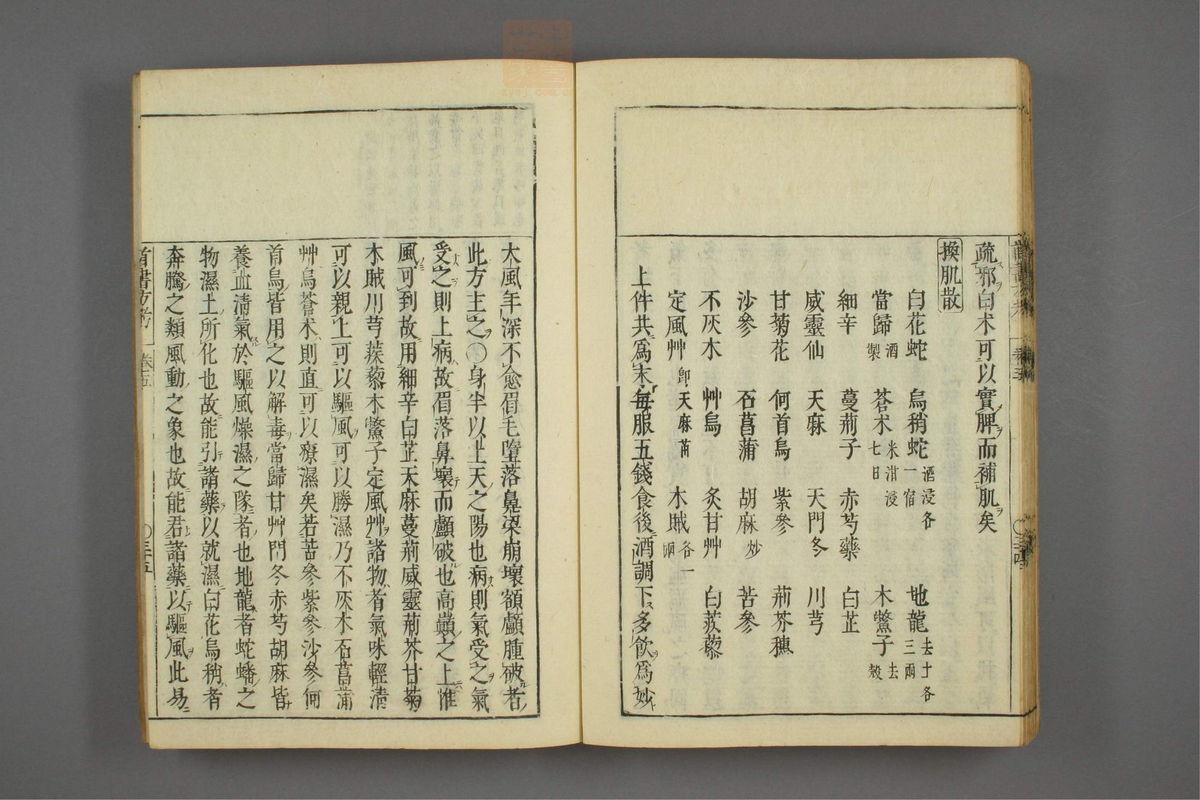 疏邪白术可以實脾而補肌矣
換肌散
白花蛇 烏稍蛇酒浸各一宿 地龍去土各三兩
當歸酒製 蒼术米泔浸七日 木鱉子去殼
細辛 蔓荊子 赤芍藥 白芷
威靈仙 天麻 天門冬 川芎
甘菊花 何首烏 紫參 荊芥穗
沙參 石菖蒲 胡麻炒 苦參
不灰木 艸烏 炙甘艸 白蒺藜
定風艸即天麻苗 木賊各一兩
上件共爲末每服五錢食後酒調下多飲爲妙
大風年深不愈眉毛墮落鼻梁崩壞額顱腫破者
此方主之○身半以上天之陽也病則氣受之氣
受之則上病故眉落鼻壞而顱破也高巔之上惟
風可到故用細辛白芷天麻蔓荊威靈荊芥甘菊
木賊川芎蒺藜木鱉子定風艸諸物者氣味輕清
可以親上可以驅風可以勝濕乃不灰木石菖蒲
艸烏蒼术則直可以療濕矣若苦參紫參沙參何
首烏皆用之以解毒當歸甘艸門冬赤芍胡麻皆
養血清氣於驅風燥濕之隊者也地龍者蛇蟠之
物濕土所化也故能引諸藥以就濕白花烏稍者
奔騰之類風動之象也故能君諸藥以驅風此易
首書方考 卷五 ○三十五